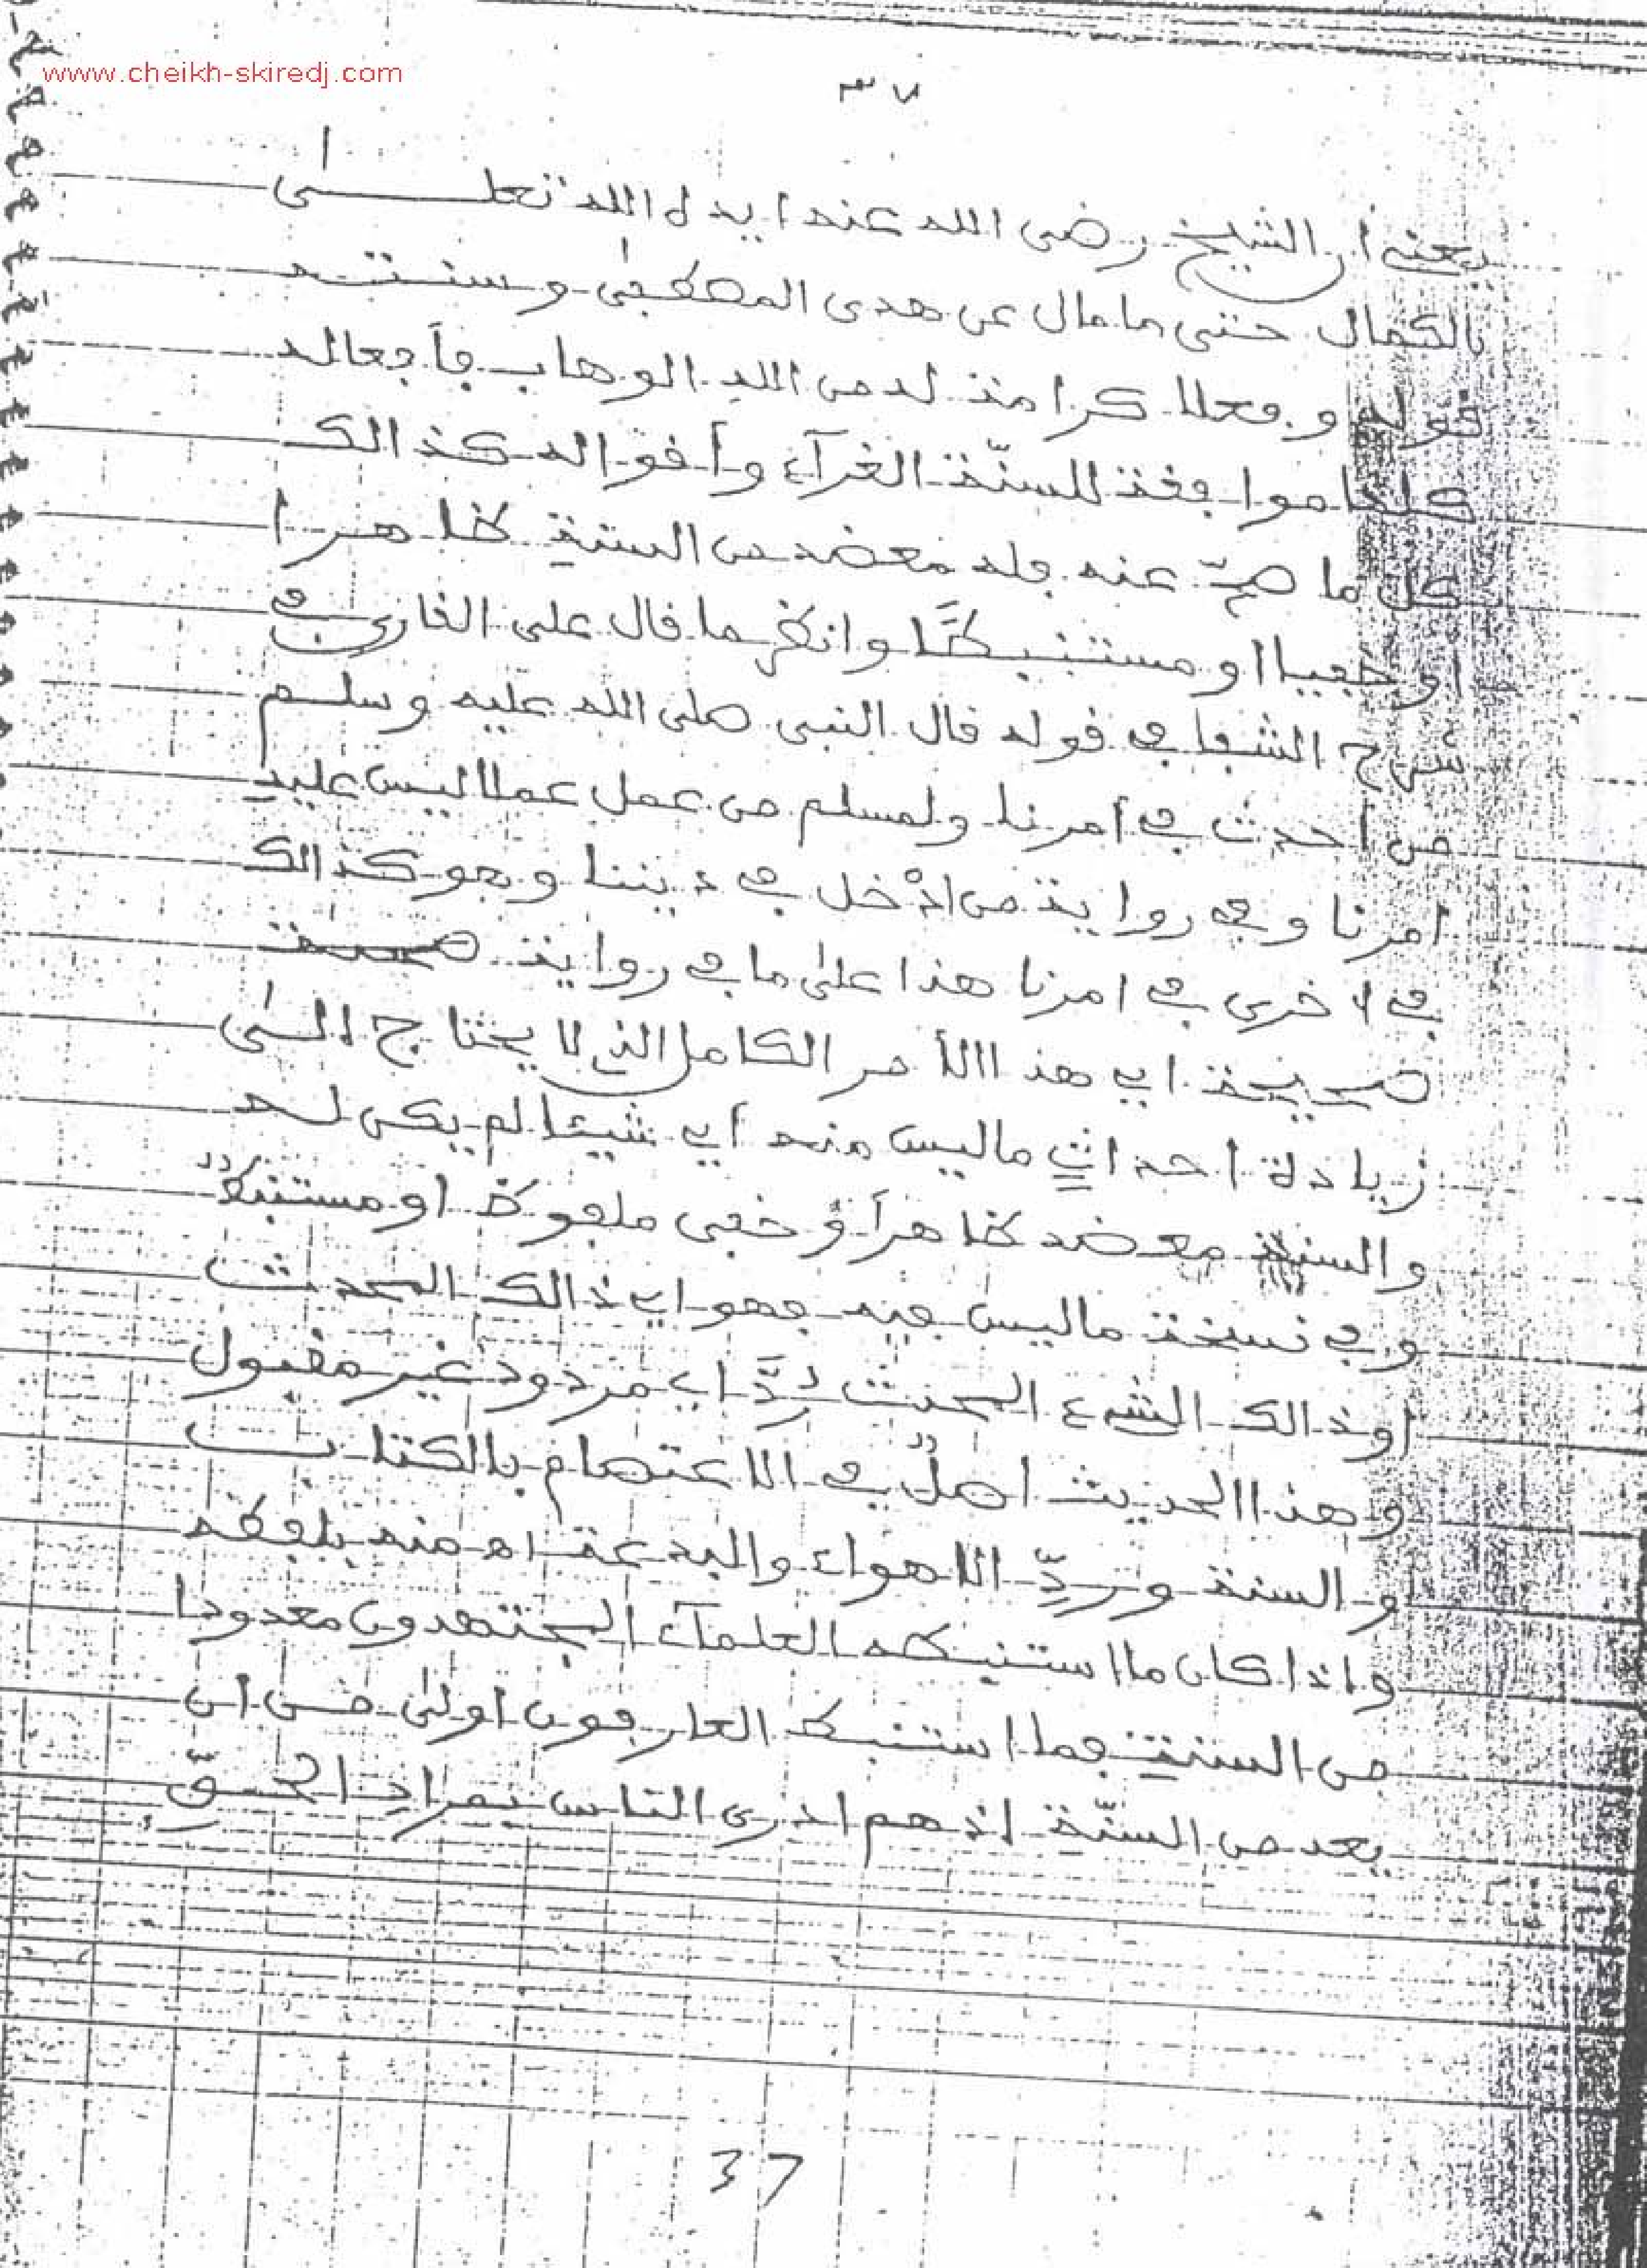 www.cheikh-skiredj.com
٣٧
يعني أن الشيخ رضى الله عنه ايده الله تعلى
بالكمال حتى ما مال عن هدى المصطفى وسنته
قولا وفعلا كرامة له من الله الوهاب فأفعاله
كلها موافقة للسنّة الغرآء وأقواله كذالك
كل ما صحّ عنه فله معضد من السنة ظاهرا
او خفيا او مستنبطًا وانظر ما قال على القاري في
شرح الشفا في قوله قال النبى صلى الله عليه وسلم
من أحدث في أمرنا ولمسلم من عمل عملا ليس عليه
امرنا وفي رواية من ادْخل في ديننا وهو كذالك
في اخرى في امرنا هذا على ما في رواية
صحيحة اي هذا الأمر الكامل الذي لا يحتاج الى
زيادة احداثٍ ما ليس منه أي شيئا لم يكن له
والسنة معضد ظاهرأو خفى ملفوظ او مستنبطٌ
وفي نسخة ما ليس فيه فهو اي ذالك المحدث
اوذالك الشيء المحدث ردٌّ اي مردود غير مقبول
وهذا الحديث اصلٌ في الاعتصام بالكتاب
والسنة وردِّ الاهواء والبدعة اه منه بلفظه
واذا كان ما استنبطه العلمآء المجتهدون معدودا
من السنة فما استنبط العارفون اولى من ان
يعد من السنّة اذ هم ادرى الناس بمرادِ الحقّ
37